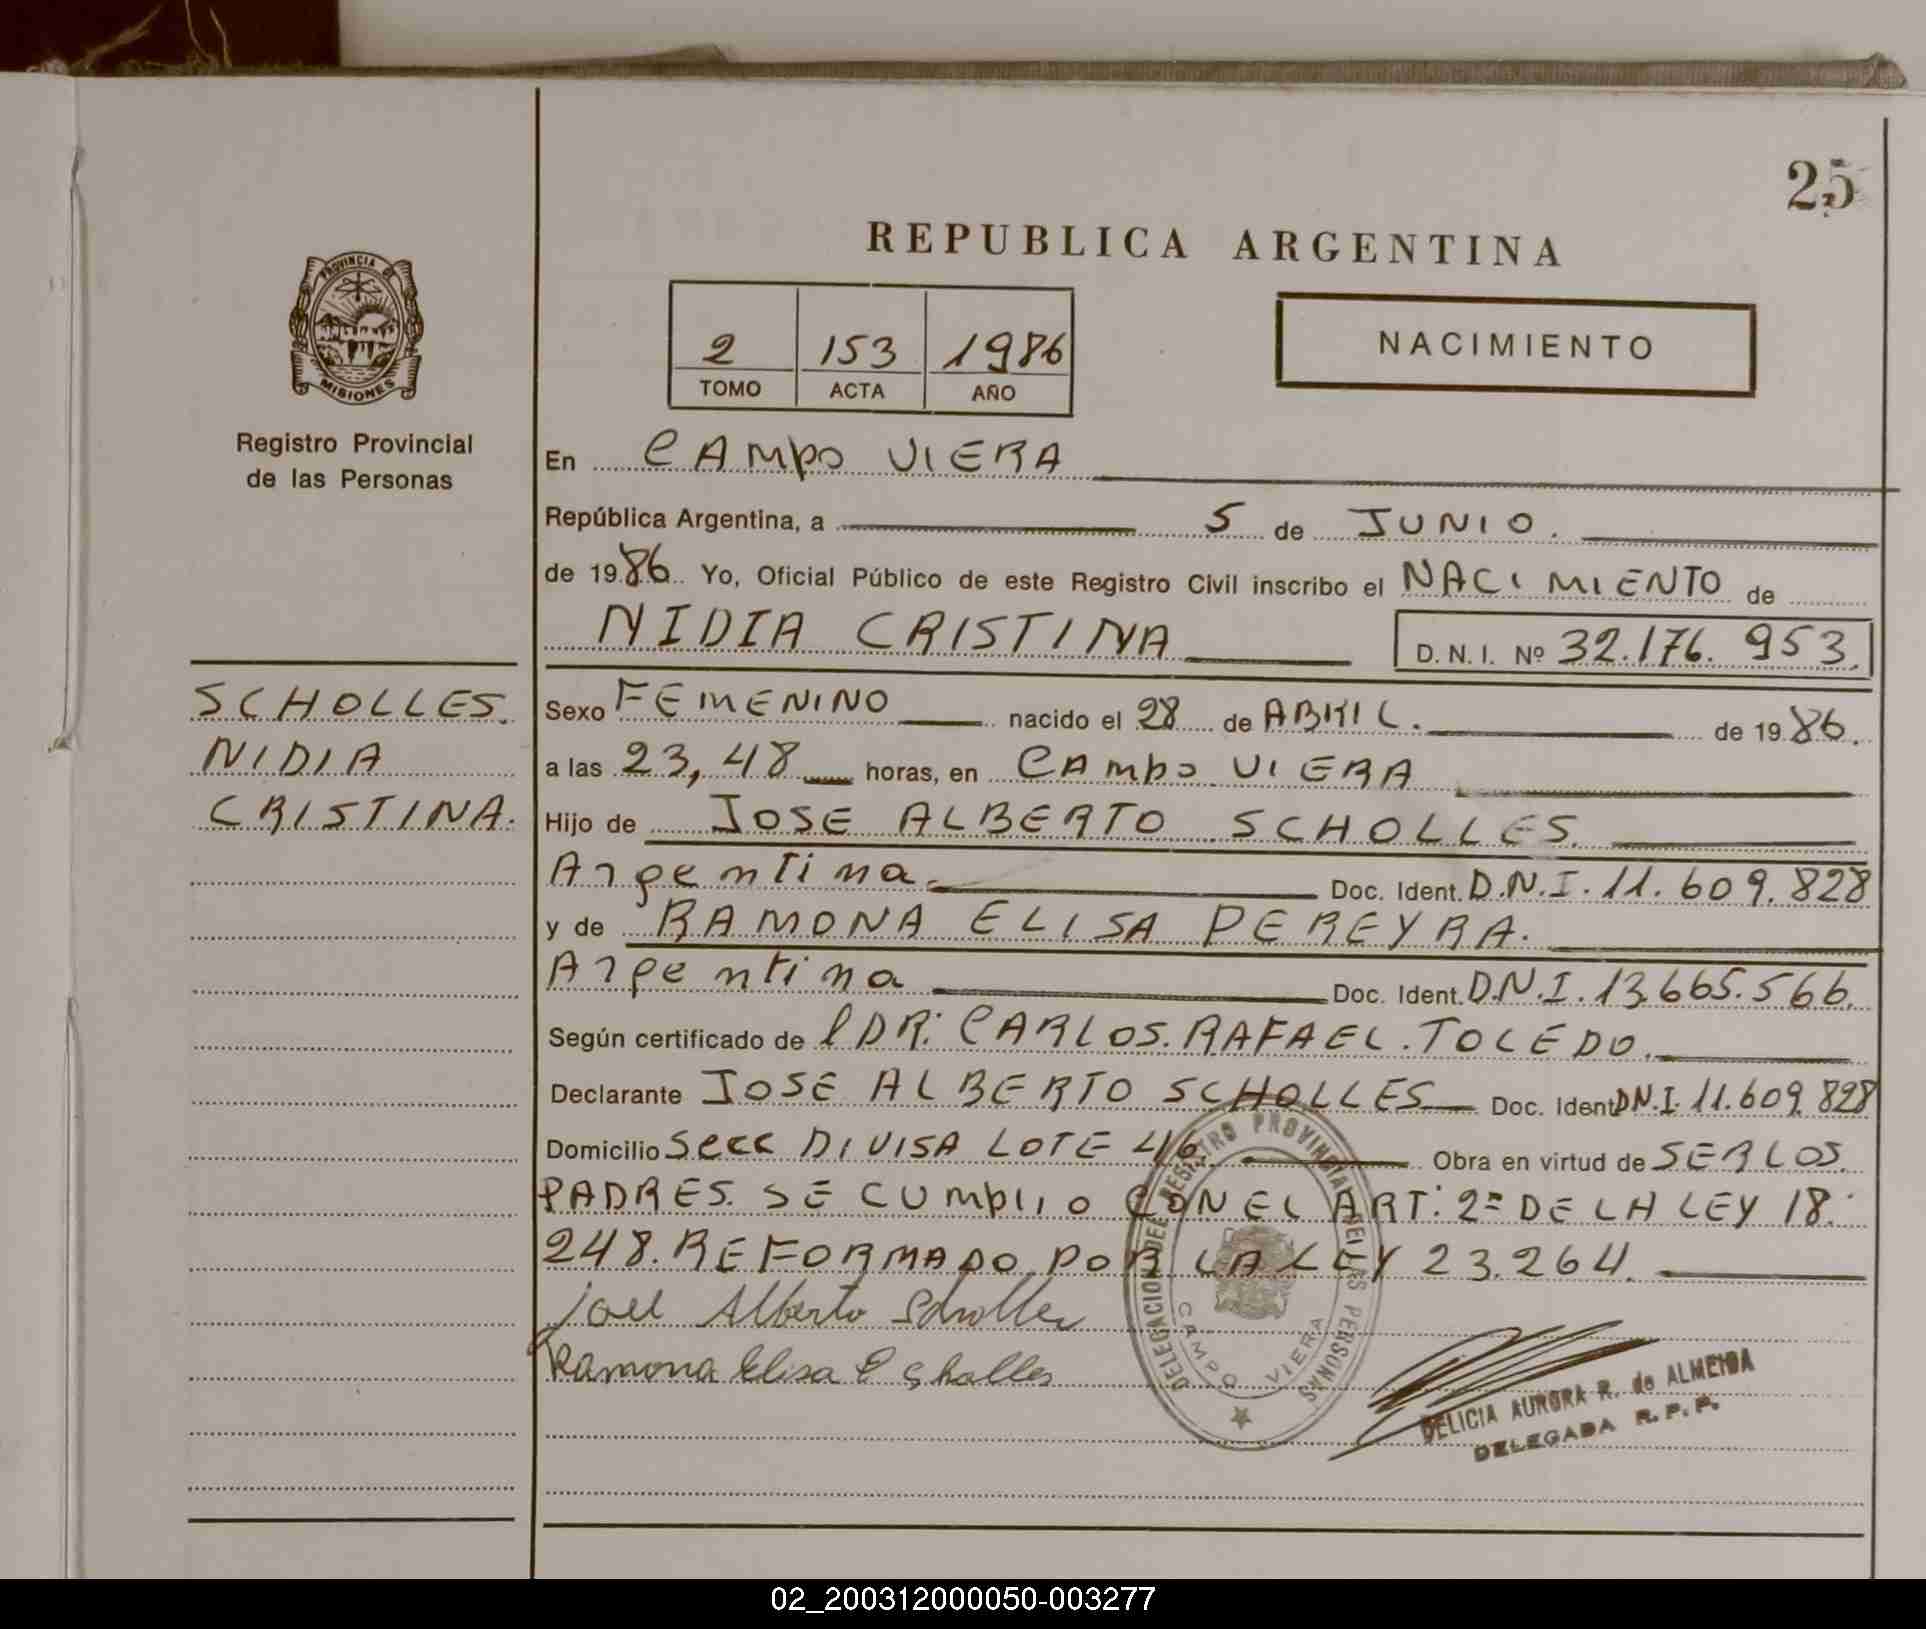 25
REPUBLICA ARGENTINA
PROVINCIA DE
MISIONES
Registro Provincial
de las Personas
2 153 1986
TOMO ACTA AÑO
NACIMIENTO
En CAMPO VIERA
República Argentina, a 5 de JUNIO.
de 1986. Yo, Oficial Público de este Registro Civil inscribo el NACIMIENTO de
NIDIA CRISTINA D. N. I. Nº 32.176.953.
SCHOLLES.
NIDIA
CRISTINA.
Sexo FEMENINO nacido el 28 de ABRIL. de 1986.
a las 23,48 horas, en CAMPO VIERA
Hijo de JOSE ALBERTO SCHOLLES.
Argentina. Doc. Ident. D.N.I. 11.609.828
y de RAMONA ELISA PEREYRA.
Argentina Doc. Ident. D.N.I. 13.665.566.
Según certificado de l DR: CARLOS. RAFAEL. TOLEDO.
Declarante JOSE ALBERTO SCHOLLES Doc. Ident D.N.I. 11.609.828
Domicilio Secc DIVISA LOTE 46. Obra en virtud de SER LOS.
PADRES. SE CUMPLIO CON EL ART: 2º DE LA LEY 18.
248. REFORMADO POR LA LEY 23.264.
José Alberto Scholles
Ramona Elisa P Scholles
DELEGACION DEL REGISTRO PROVINCIAL DE LAS PERSONAS
CAMPO VIERA
DELICIA AURORA R. de ALMEIDA
DELEGADA R. P. P.
02_200312000050-003277